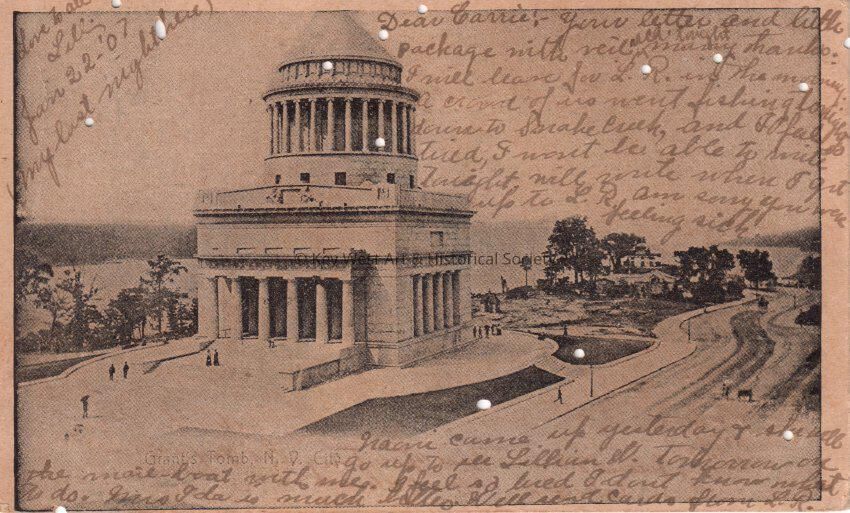 Dear Carrie:- Your letter and little
package with veil, many thanks.
rec'd tonight
I will leave for L.R. in the morning
a crowd of us went fishing today
down to Snake Creek, and I feel so
tired, I wont be able to write
tonight will write when I get
up to L.R. am sorry you were
feeling sick.
Love to all
Lillie
Jan 22-'07
(my last night here)
© Key West Art & Historical Society
Grant's Tomb, N. Y. City
came up yesterday &
go up to see Lillian W. tomorrow on
the mail boat with me. I feel so tired I don't know what
to do. Miss Ida is much better. Will send cards from L.R.